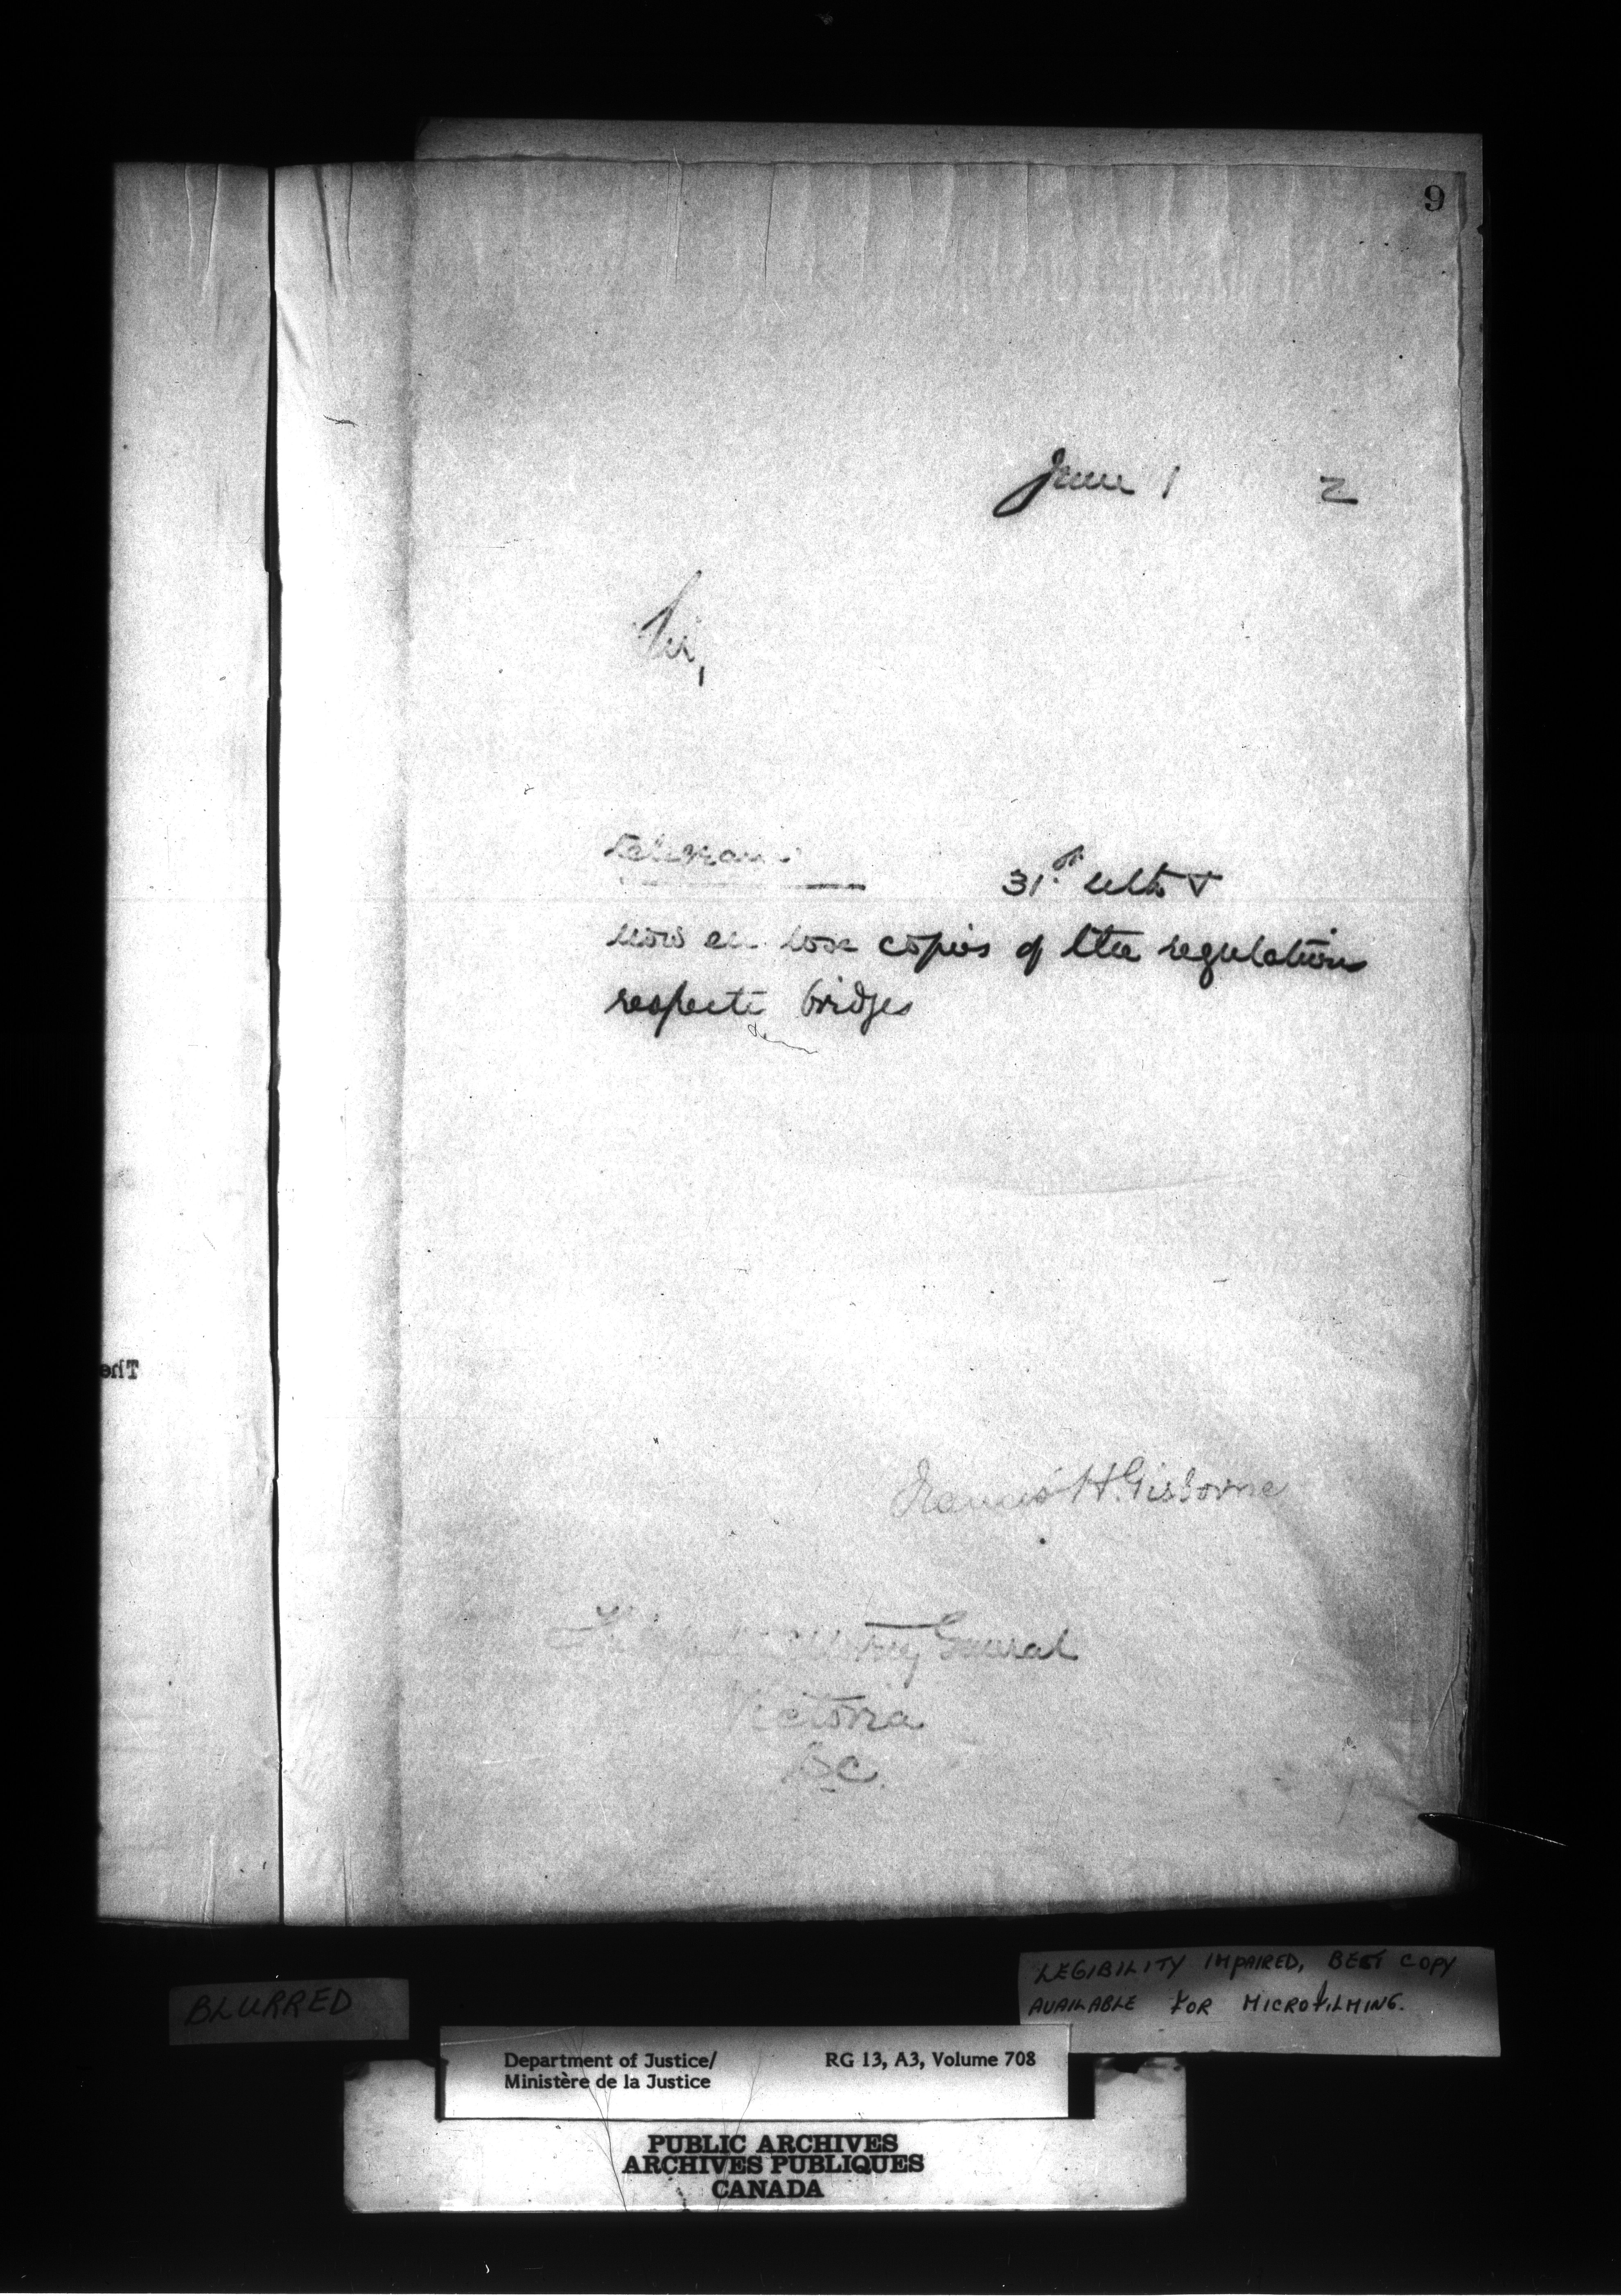 9
June 1 2
Sir,
telegram
31st ulto &
now en lose copies of the regulations
respecti bridges
Francis H. Gisborne
Attorney General
Victoria
B.C.
The
BLURRED
LEGIBILITY IMPAIRED, BEST COPY
AVAILABLE FOR MICROFILMING.
Department of Justice/ RG 13, A3, Volume 708
Ministère de la Justice
PUBLIC ARCHIVES
ARCHIVES PUBLIQUES
CANADA